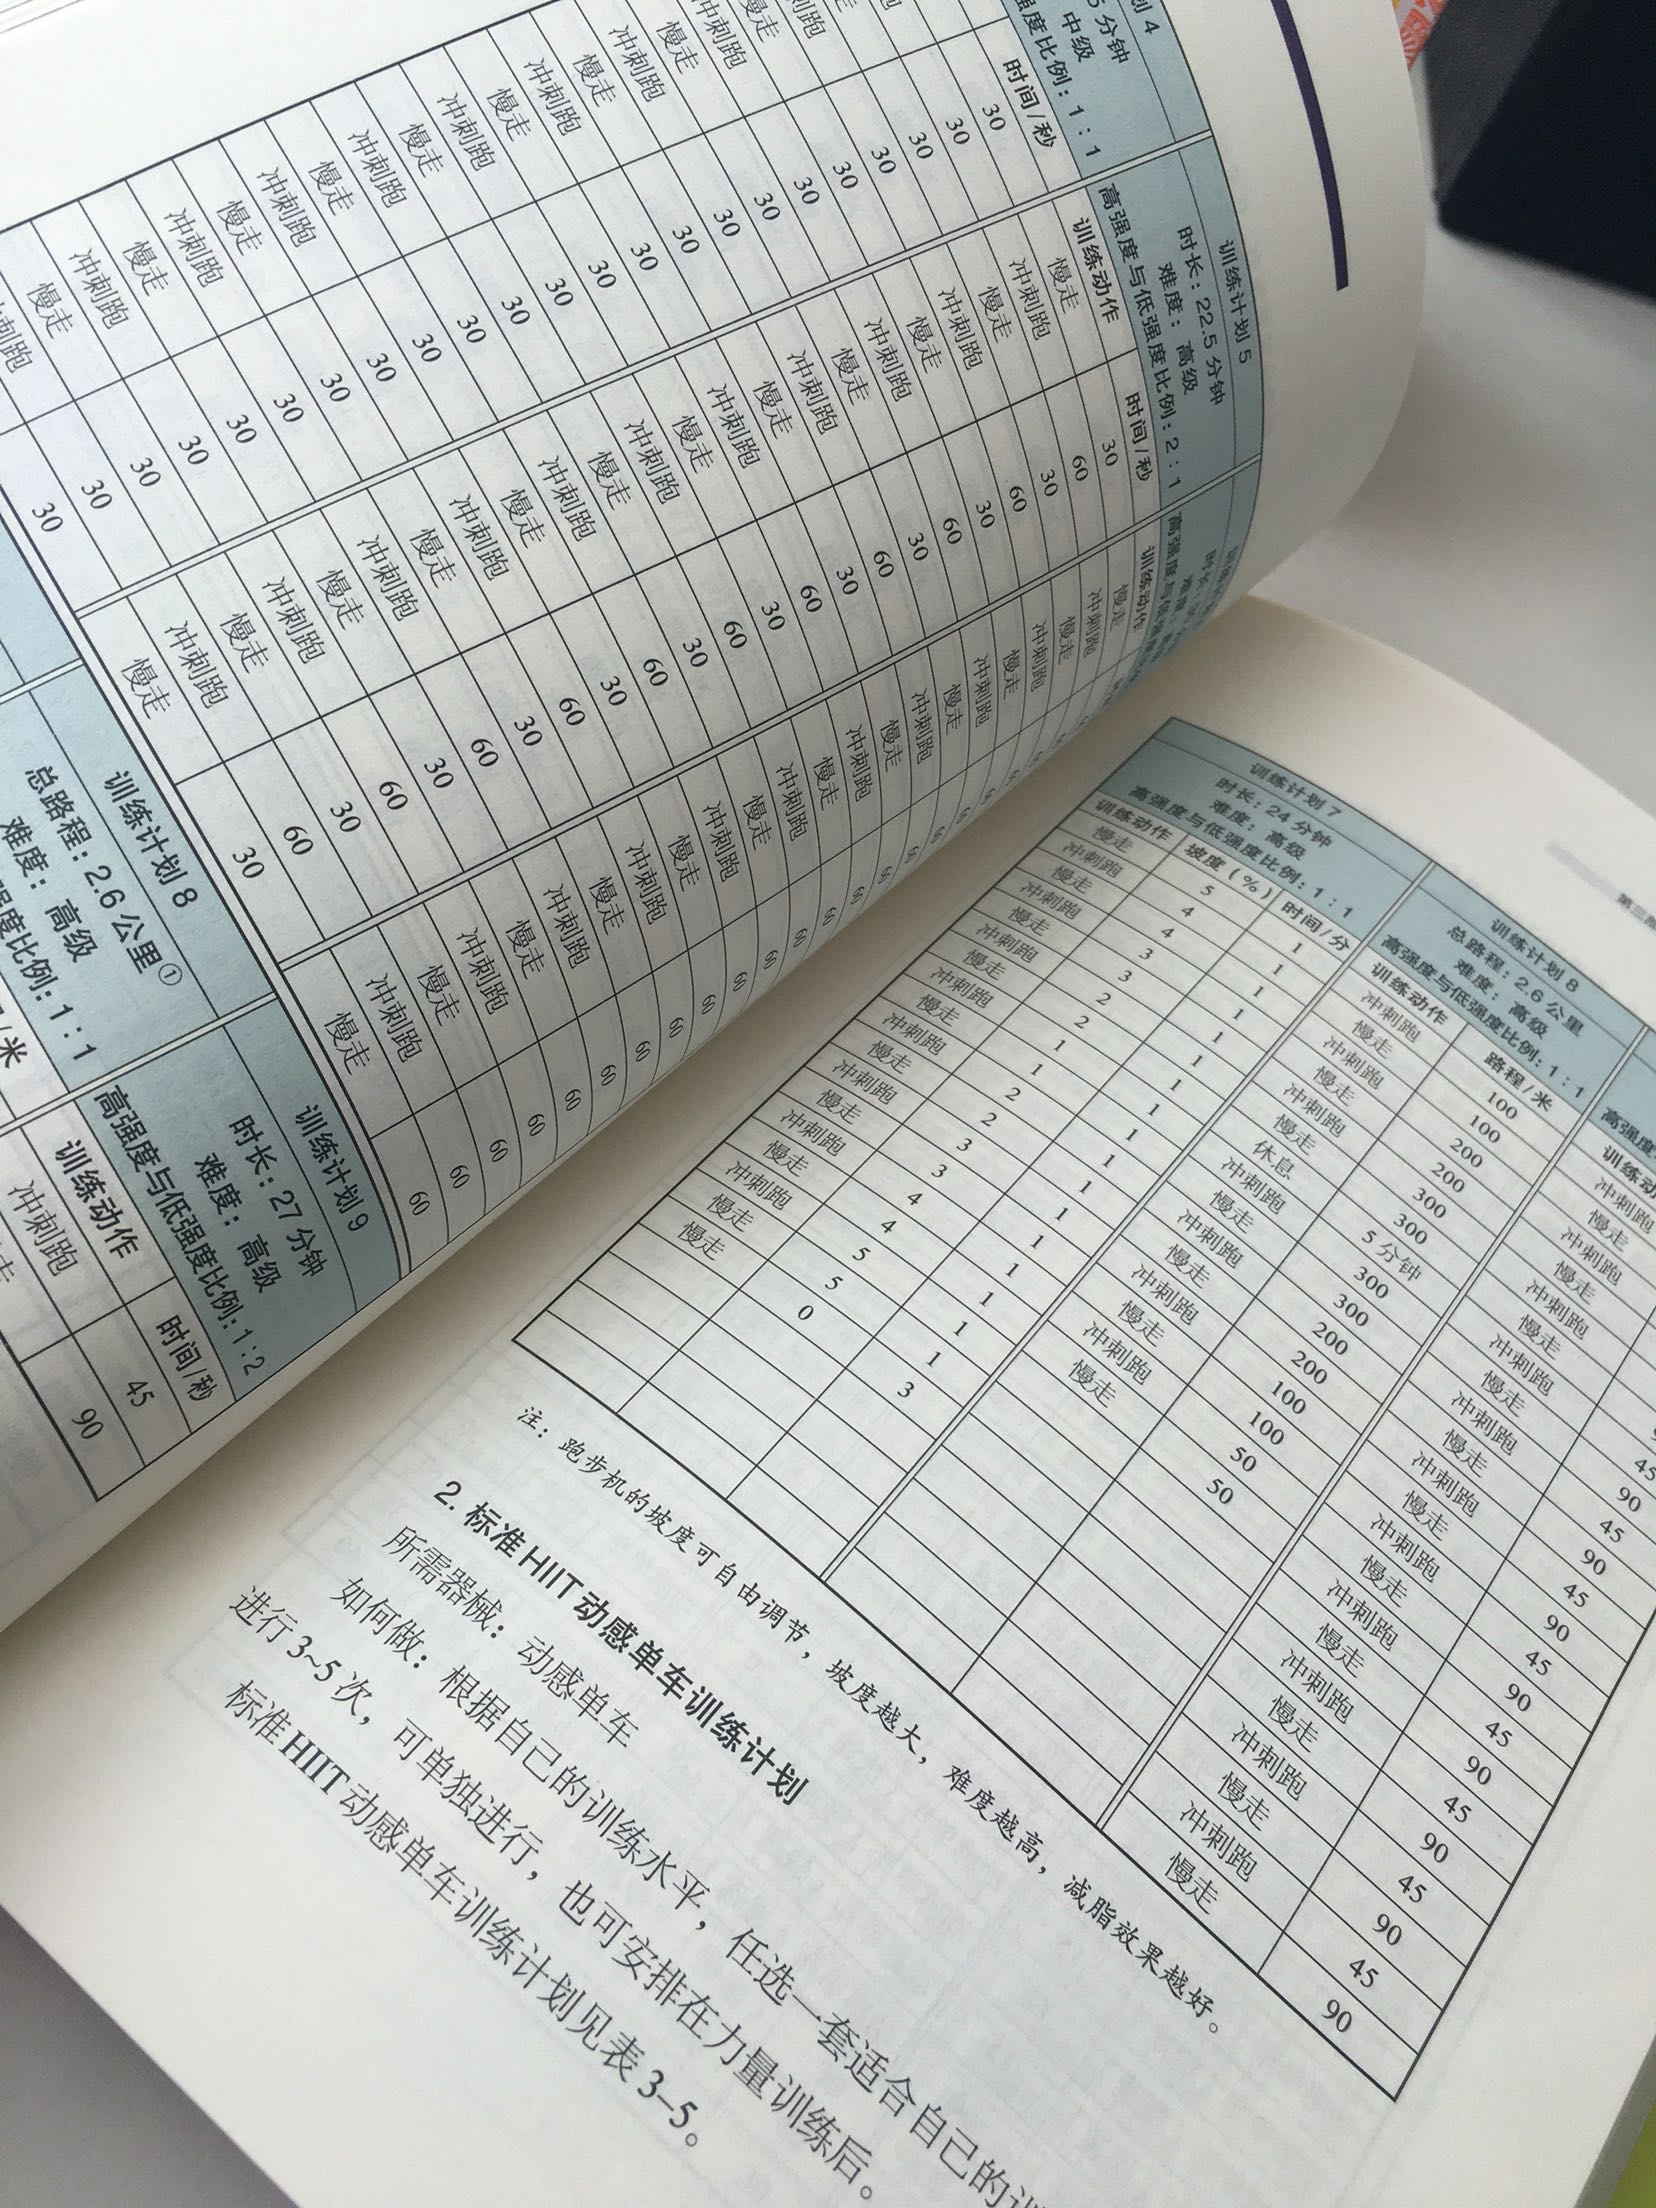 划4
5分钟
中级
强度比例：1：1
时间/秒
30
30
30
冲刺跑 30
慢走 30
冲刺跑 30
慢走 30
冲刺跑 30
慢走 30
冲刺跑 30
慢走 30
冲刺跑 30
慢走 30
冲刺跑 30
慢走 30
冲刺跑 30
慢走 30
冲刺跑 30
慢走 30
冲刺跑 30
慢走 30
冲刺跑 30
30
训练计划5
时长：22.5分钟
难度：高级
高强度与低强度比例：2：1
训练动作 时间/秒
慢走 30
冲刺跑 60
慢走 30
冲刺跑 60
慢走 30
冲刺跑 60
慢走 30
冲刺跑 60
慢走 30
冲刺跑 60
慢走 30
冲刺跑 60
慢走 30
冲刺跑 60
慢走 30
冲刺跑 60
慢走 30
冲刺跑 60
慢走 30
冲刺跑 60
慢走 30
冲刺跑 60
慢走 30
训练动作
慢走
冲刺跑
慢走
冲刺跑
慢走
冲刺跑
慢走
冲刺跑
慢走 60
冲刺跑 60
慢走 60
冲刺跑 60
慢走 60
冲刺跑 60
慢走 60
冲刺跑 60
慢走 60
冲刺跑 60
慢走 60
冲刺跑 60
慢走 60
冲刺跑 60
慢走 60
训练计划8
总路程：2.6公里①
难度：高级
强度比例：1：1
/米
训练计划9
时长：27分钟
难度：高级
高强度与低强度比例：1：2
训练动作 时间/秒
冲刺跑 45
走 90
第三
训练计划7
时长：24分钟
难度：高级
高强度与低强度比例：1：1
训练动作 坡度（%） 时间/分
慢走 5 1
冲刺跑 4 1
慢走 4 1
冲刺跑 3 1
慢走 3 1
冲刺跑 2 1
慢走 2 1
冲刺跑 1 1
慢走 1 1
冲刺跑 2 1
慢走 2 1
冲刺跑 3 1
慢走 3 1
冲刺跑 4 1
慢走 4 1
冲刺跑 5 1
慢走 5 1
慢走 0 3
训练计划8
总路程：2.6公里
难度：高级
高强度与低强度比例：1：1
训练动作 路程/米
冲刺跑 100
慢走 100
冲刺跑 200
慢走 200
冲刺跑 300
慢走 300
休息 5分钟
冲刺跑 300
慢走 300
冲刺跑 200
慢走 200
冲刺跑 100
慢走 100
冲刺跑 50
慢走 50
高强度
训练动
冲刺跑
慢走
冲刺跑
慢走
冲刺跑
慢走
冲刺跑 45
慢走 90
冲刺跑 45
慢走 90
冲刺跑 45
慢走 90
冲刺跑 45
慢走 90
冲刺跑 45
慢走 90
冲刺跑 45
慢走 90
冲刺跑 45
慢走 90
冲刺跑 45
慢走 90
注：跑步机的坡度可自由调节，坡度越大，难度越高，减脂效果越好。
2. 标准HIIT动感单车训练计划
所需器械：动感单车
如何做：根据自己的训练水平，任选一套适合自己的训
进行3~5次，可单独进行，也可安排在力量训练后。
标准HIIT动感单车训练计划见表3–5。